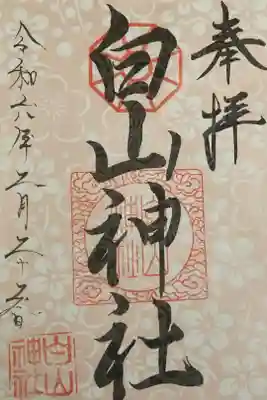 奉拝
白山神社
令和六年二月二十二日
白山
神社